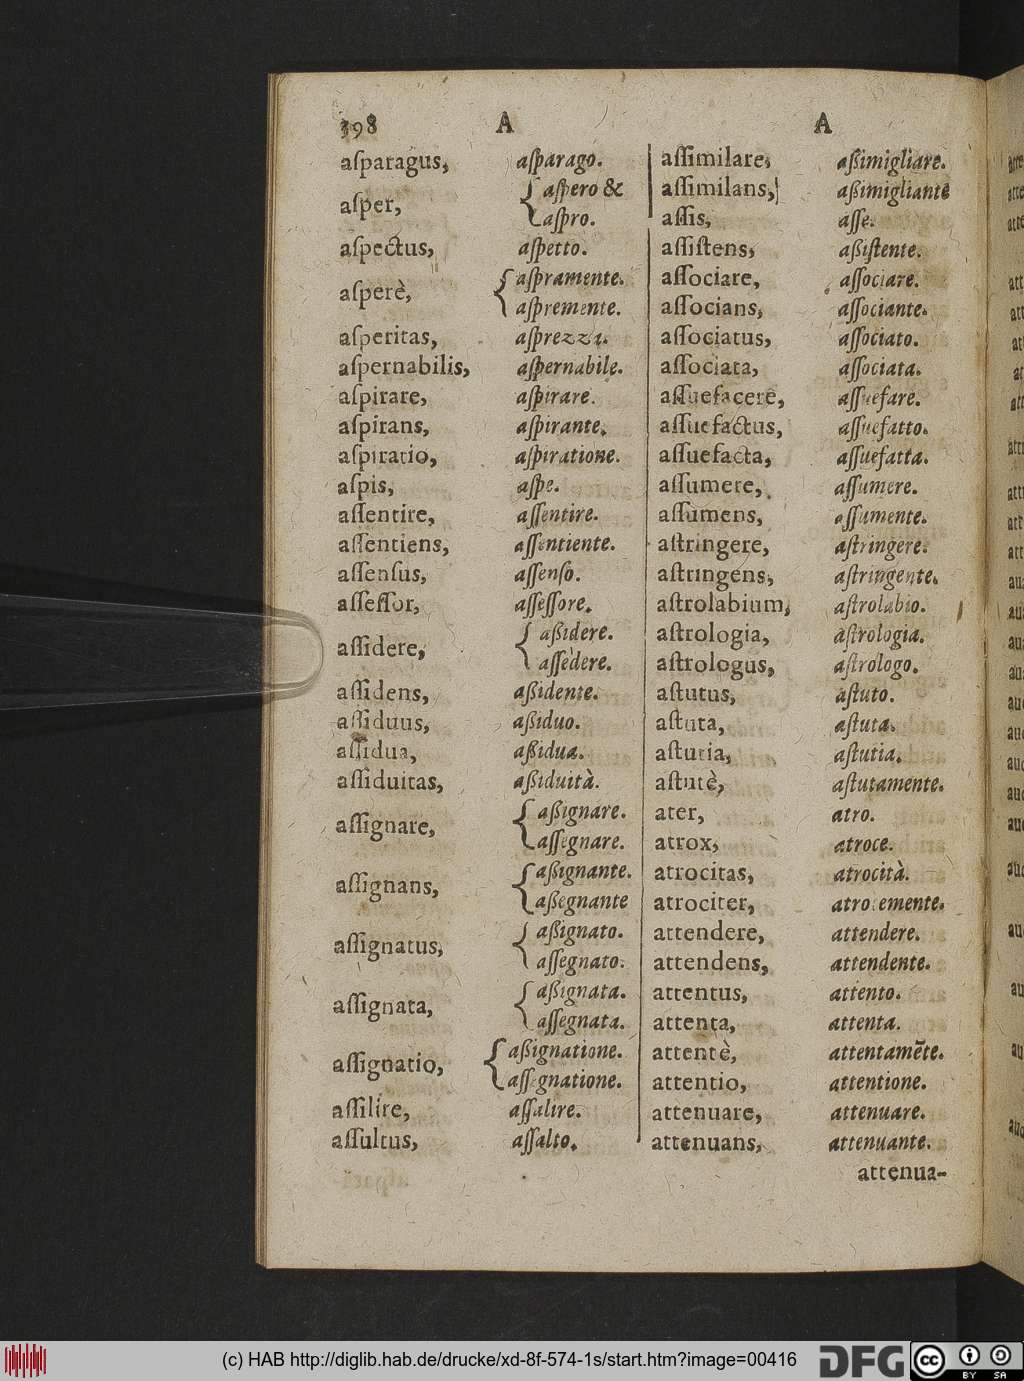 398 A A
aſparagus, aſparago.
aſper, aſpero &
aſpro.
aſpectus, aſpetto.
aſperè, aſpramente.
aſpremente.
aſperitas, aſprezza.
aſpernabilis, aſpernabile.
aſpirare, aſpirare.
aſpirans, aſpirante.
aſpiratio, aſpiratione.
aſpis, aſpe.
aſſentire, aſſentire.
aſſentiens, aſſentiente.
aſſenſus, aſſenſo.
aſſeſſor, aſſeſſore.
aſſidere, aßidere.
aſſedere.
aſſidens, aßidente.
aſſiduus, aßiduo.
aſſidua, aßidua.
aſſiduitas, aßiduità.
aſſignare, aßignare.
aſſegnare.
aſſignans, aßignante.
aßegnante
aſſignatus, aßignato.
aſſegnato.
aſſignata, aßignata.
aſſegnata.
aſſignatio, aßignatione.
aſſegnatione.
aſſilire, aſſalire.
aſſultus, aſſalto.
aſſimilare, aßimigliare.
aſſimilans, aßimigliante
aſſis, aſſe.
aſſiſtens, aßiſtente.
aſſociare, aſſociare.
aſſocians, aſſociante.
aſſociatus, aſſociato.
aſſociata, aſſociata.
aſſuefacere, aſſuefare.
aſſuefactus, aſſuefatto.
aſſuefacta, aſſuefatta.
aſſumere, aſſumere.
aſſumens, aſſumente.
aſtringere, aſtringere.
aſtringens, aſtringente.
aſtrolabium, aſtrolabio.
aſtrologia, aſtrologia.
aſtrologus, aſtrologo.
aſtutus, aſtuto.
aſtuta, aſtuta.
aſtutia, aſtutia.
aſtutè, aſtutamente.
ater, atro.
atrox, atroce.
atrocitas, atrocità.
atrociter, atrocemente.
attendere, attendere.
attendens, attendente.
attentus, attento.
attenta, attenta.
attentè, attentamẽte.
attentio, attentione.
attenuare, attenuare.
attenuans, attenuante.
attenua-
(c) HAB http://diglib.hab.de/drucke/xd-8f-574-1s/start.htm?image=00416
DFG
cc BY SA